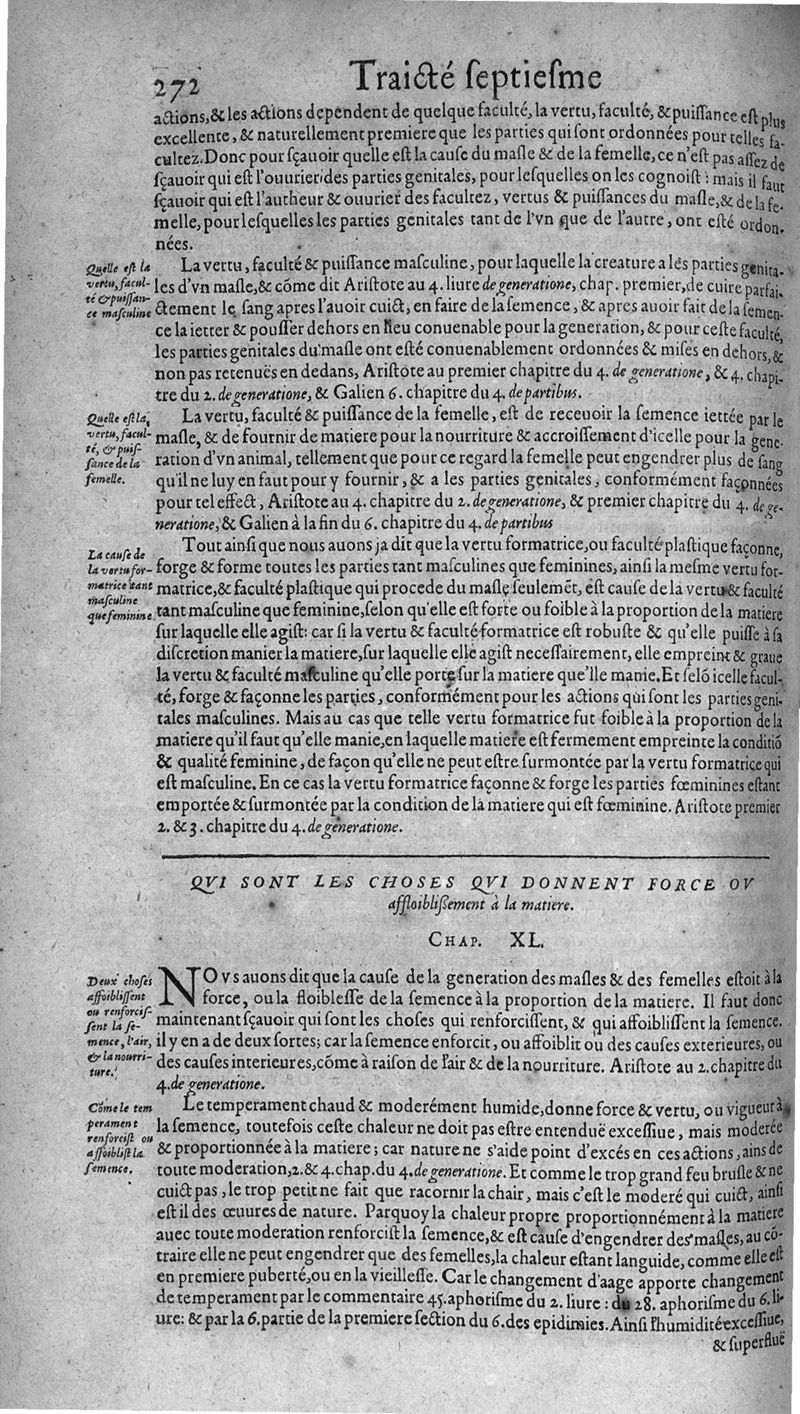 272 Traicté septiesme
actions, & les actions dependent de quelque faculté, la vertu, faculté, & puissance est plus
excellente, & naturellement premiere que les parties qui sont ordonnées pour telles fa-
cultez. Donc pour sçauoir quelle est la cause du masle & de la femelle, ce n'est pas assez de
sçauoir qui est l'ouurier des parties genitales, pour lesquelles on les cognoist : mais il faut
sçauoir qui est l'autheur & ouurier des facultez, vertus & puissances du masle, & de la fe-
melle, pour lesquelles les parties genitales tant de l'vn que de l'autre, ont esté ordon-
nées.
Quelle est la
vertu, facul-
té & puissan-
ce masculine
La vertu, faculté & puissance masculine, pour laquelle la creature a les parties genita-
les d'vn masle, & cõme dit Aristote au 4. liure de generatione, chap. premier, de cuire parfai-
ctement le sang apres l'auoir cuict, en faire de la semence, & apres auoir fait de la semen-
ce la ietter & pousser dehors en lieu conuenable pour la generation, & pour ceste faculté,
les parties genitales du masle ont esté conuenablement ordonnées & mises en dehors, &
non pas retenuës en dedans, Aristote au premier chapitre du 4. de generatione, & 4. chapi-
tre du 2. de generatione, & Galien 6. chapitre du 4. de partibus.
Quelle est la
vertu, facul-
té, & puis-
sance de la
femelle.
La vertu, faculté & puissance de la femelle, est de receuoir la semence iettée par le
masle, & de fournir de matiere pour la nourriture & accroissement d'icelle pour la gene-
ration d'vn animal, tellement que pour ce regard la femelle peut engendrer plus de sang
qu'il ne luy en faut pour y fournir, & a les parties genitales, conformément façonnées
pour tel effect, Aristote au 4. chapitre du 2. de generatione, & premier chapitre du 4. de ge-
neratione, & Galien à la fin du 6. chapitre du 4. de partibus
La cause de
la vertu for-
matrice tant
masculine
que feminine
Tout ainsi que nous auons ja dit que la vertu formatrice, ou faculté plastique façonne,
forge & forme toutes les parties tant masculines que feminines, ainsi la mesme vertu for-
matrice, & faculté plastique qui procede du masle seulemẽt, est cause de la vertu & faculté
tant masculine que feminine, selon qu'elle est forte ou foible à la proportion de la matiere
sur laquelle elle agist : car si la vertu & faculté formatrice est robuste & qu'elle puisse à sa
discretion manier la matiere, sur laquelle elle agist necessairement, elle empreint & graue
la vertu & faculté masculine qu'elle porte sur la matiere que'lle manie. Et selõ icelle facul-
té, forge & façonne les parties, conformément pour les actions qui sont les parties geni-
tales masculines. Mais au cas que telle vertu formatrice fut foible à la proportion de la
matiere qu'il faut qu'elle manie, en laquelle matiere est fermement empreinte la conditiõ
& qualité feminine, de façon qu'elle ne peut estre surmontée par la vertu formatrice qui
est masculine. En ce cas la vertu formatrice façonne & forge les parties fœminines estant
emportée & surmontée par la condition de la matiere qui est fœminine. Aristote premier
2. & 3. chapitre du 4. de generatione.
QVI SONT LES CHOSES QVI DONNENT FORCE OV
affloiblißement à la matiere.
CHAP. XL.
Deux choses
affoiblissent
ou renforcis-
sent la se-
mence, l'air,
& la nourri-
ture.
NOVs auons dit que la cause de la generation des masles & des femelles estoit à la
force, ou la floiblesse de la semence à la proportion de la matiere. Il faut donc
maintenant sçauoir qui sont les choses qui renforcissent, & qui affoiblissent la semence.
il y en a de deux sortes; car la semence enforcit, ou affoiblit ou des causes exterieures, ou
des causes interieures, cõme à raison de l'air & de la nourriture. Aristote au 2. chapitre du
4. de generatione.
Cõme le tem
perament
renforcist ou
affoiblist la
semence.
Le temperament chaud & moderément humide, donne force & vertu, ou vigueur à
la semence, toutefois ceste chaleur ne doit pas estre entenduë excessiue, mais moderée
& proportionnée à la matiere; car nature ne s'aide point d'excés en ces actions, ains de
toute moderation, 2. & 4. chap. du 4. de generatione. Et comme le trop grand feu brusle & ne
cuict pas, le trop petit ne fait que racornir la chair, mais c'est le moderé qui cuict, ainsi
est il des œuures de nature. Parquoy la chaleur propre proportionnément à la matiere
auec toute moderation renforcist la semence, & est cause d'engendrer des masles, au cõ-
traire elle ne peut engendrer que des femelles, la chaleur estant languide, comme elle est
en premiere puberté, ou en la vieillesse. Car le changement d'aage apporte changement
de temperament par le commentaire 45. aphorisme du 2. liure : du 28. aphorisme du 6. li-
ure: & par la 6. partie de la premiere section du 6. des epidimies. Ainsi l'humidité excessiue,
& superfluë